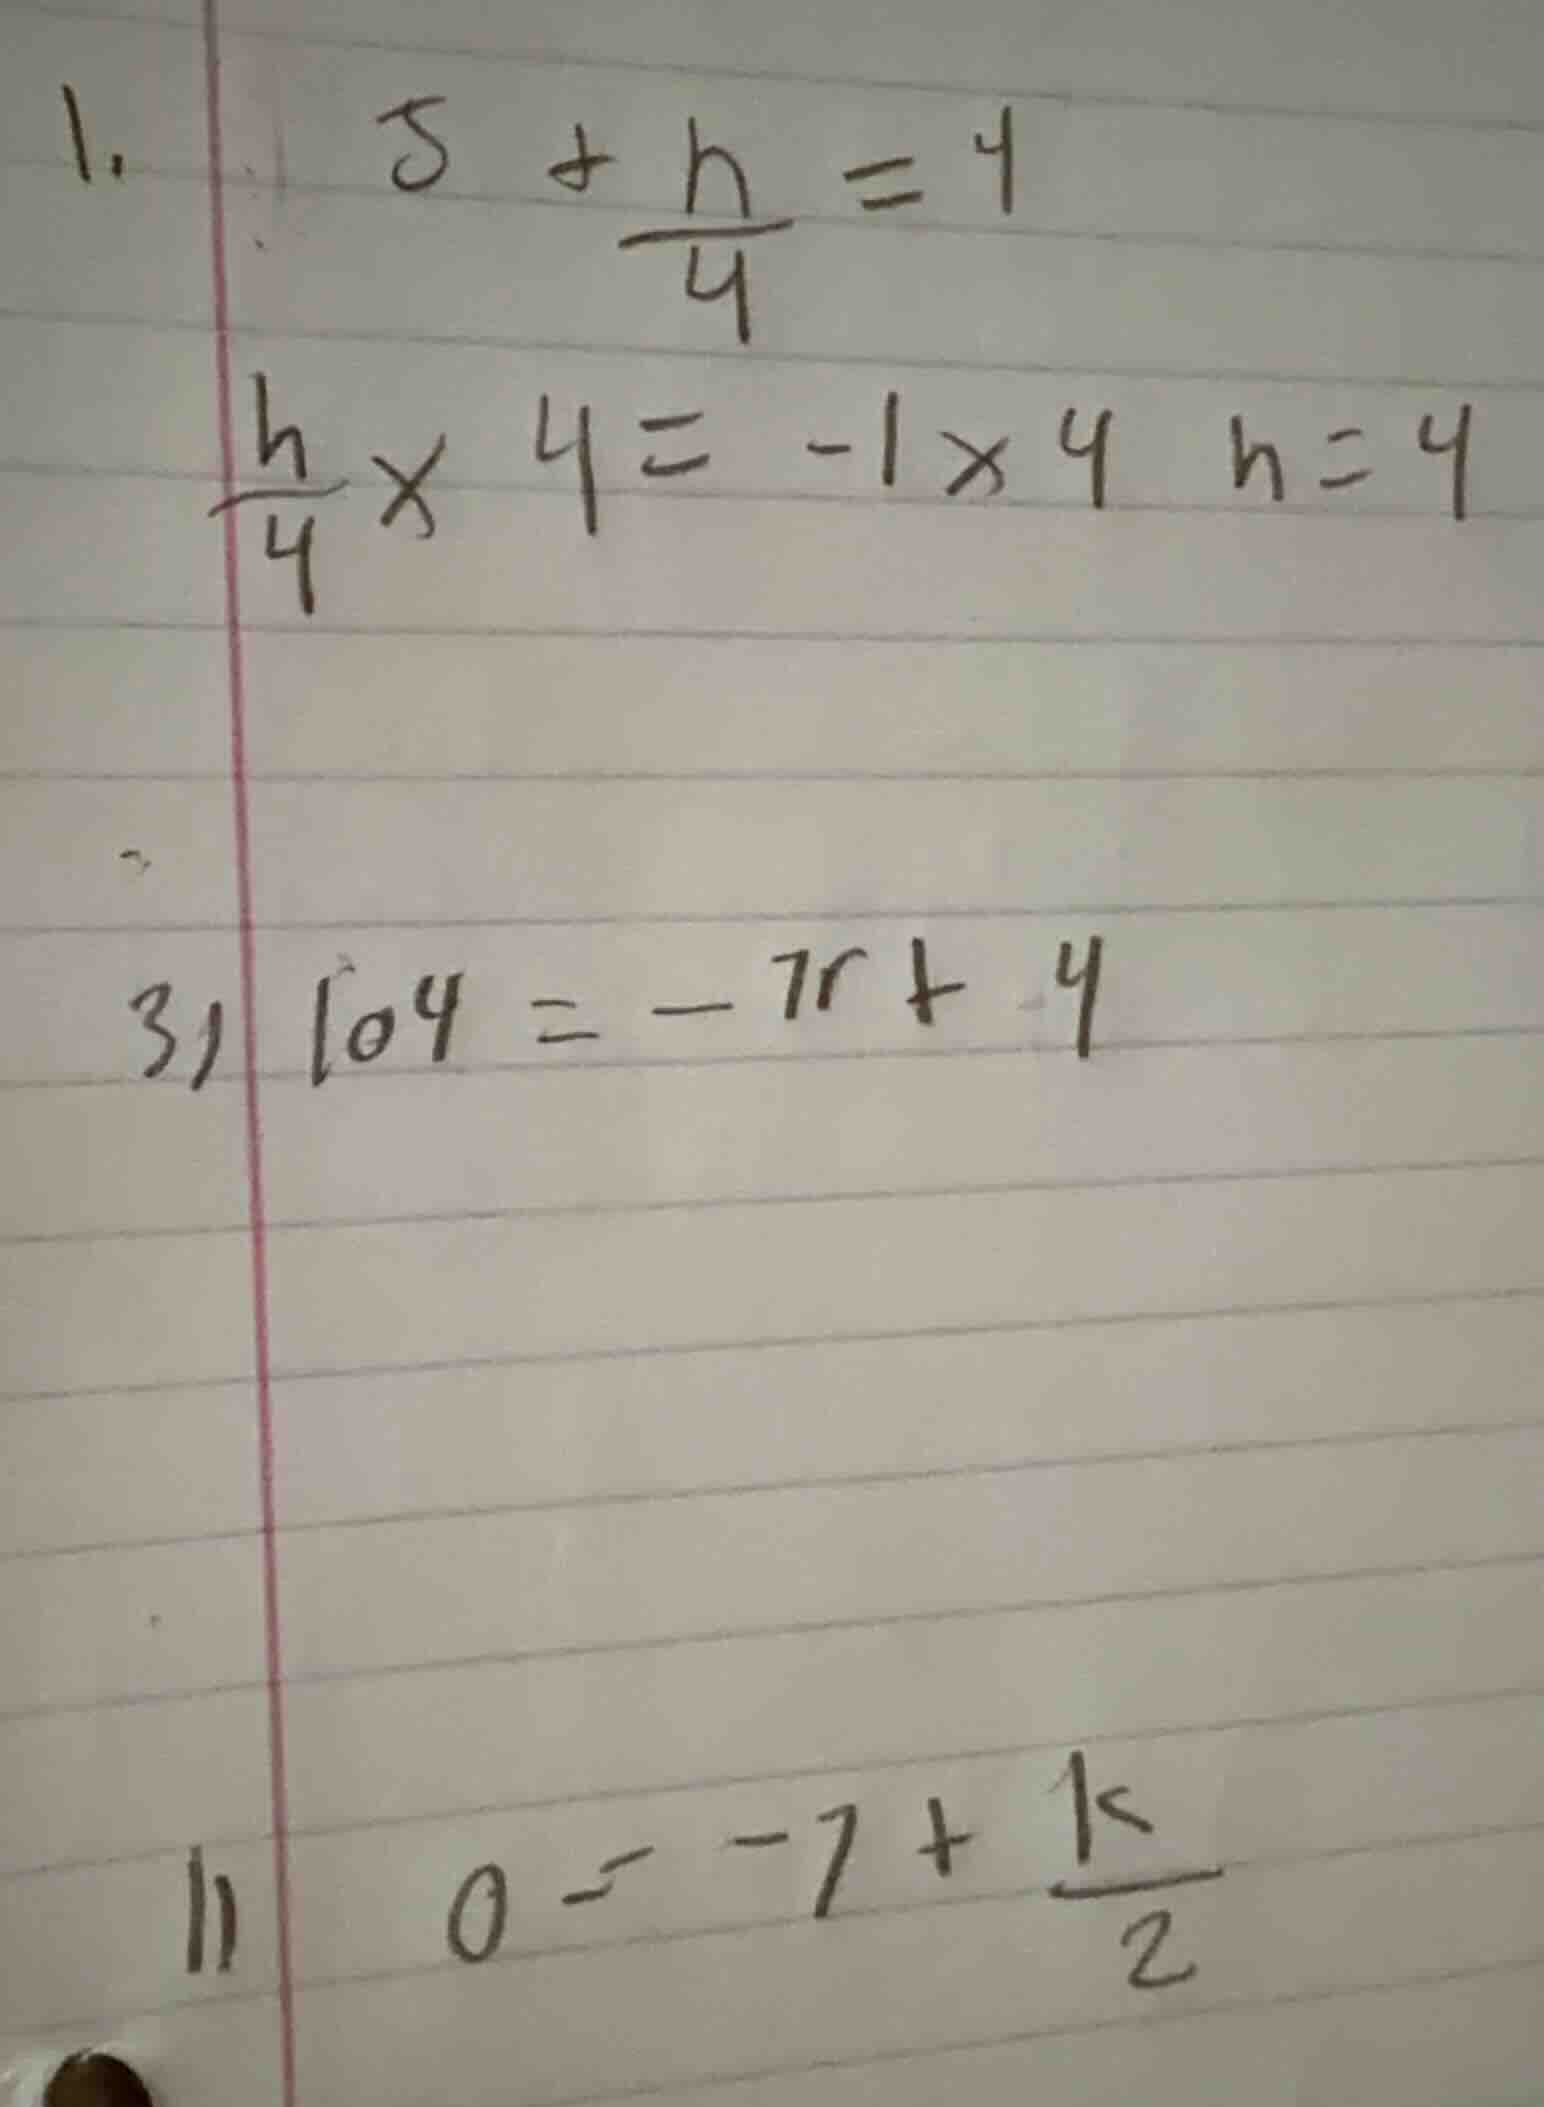 1. 5 + n/4 = 4
n/4 × 4 = -1 × 4 n = 4
3) 104 = - 7r + 4
11 0 = -7 + k/2